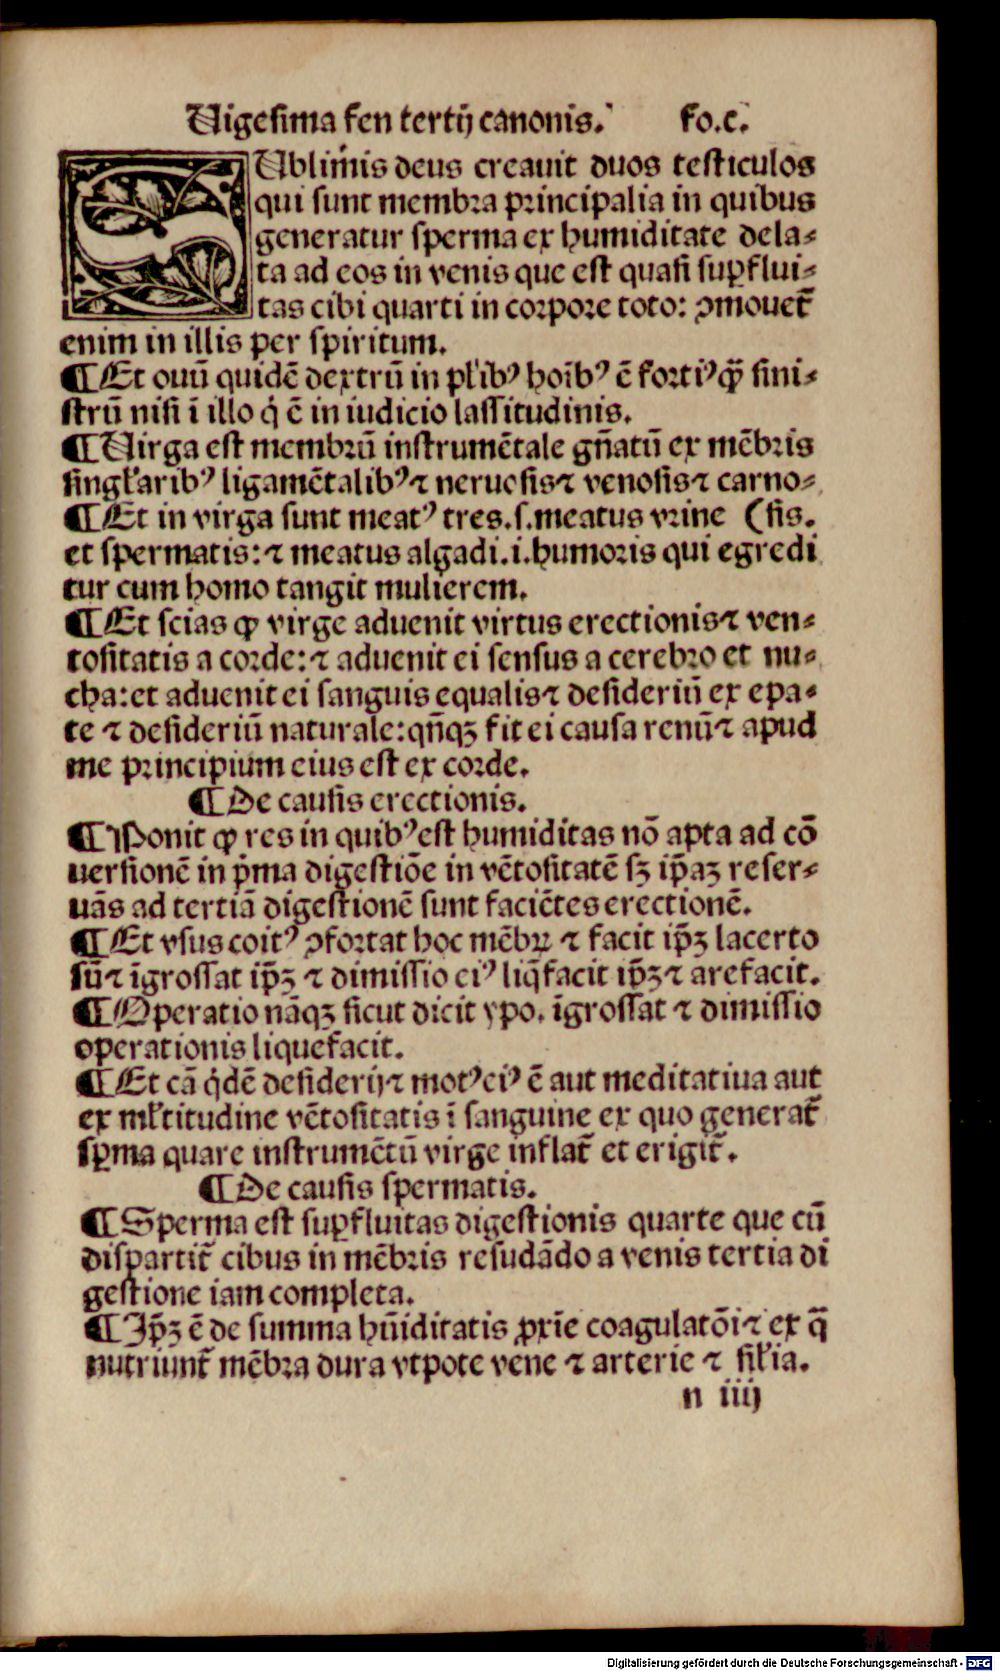 Uigesima fen tertij canonis. fo.c.
SUblimis deus creauit duos testiculos
qui sunt membra principalia in quibus
generatur sperma ex humiditate dela⸗
ta ad eos in venis que est quasi suꝑflui⸗
tas cibi quarti in corpore toto: ꝯmouet᷑
enim in illis per spiritum.
¶ Et ouū quidē dextrū in pl'ibꝰ hoībꝰ ē fortiꝰ ꝙ̄ sini⸗
strū nisi ī illo q̇ ē in iudicio lassitudinis.
¶ Uirga est membrū instrumētale gn̄atū ex mēbris
singl'aribꝰ ligamētalibꝰ ⁊ neruosis ⁊ venosis ⁊ carno⸗
¶ Et in virga sunt meatꝰ tres.s.meatus vrine (sis.
et spermatis: ⁊ meatus algadi.i.humoris qui egredi
tur cum homo tangit mulierem.
¶ Et scias ꝙ virge aduenit virtus erectionis ⁊ ven⸗
tositatis a corde: ⁊ aduenit ei sensus a cerebro et nu⸗
cha: et aduenit ei sanguis equalis ⁊ desideriū ex epa⸗
te ⁊ desideriū naturale: qn̄qꝫ fit ei causa renū ⁊ apud
me principium eius est ex corde.
¶ De causis erectionis.
¶ Ponit ꝙ res in quibꝰ est humiditas nō apta ad cō
uersionē in p̄ma digestiōe in vētositatē sꝫ ip̄aꝫ reser⸗
uās ad tertiā digestionē sunt faciētes erectionē.
¶ Et vsus coitꝰ ꝯfortat hoc mēbꝝ ⁊ facit ip̄ꝫ lacerto
sū ⁊ īgrossat ip̄ꝫ ⁊ dimissio eiꝰ liq̄facit ip̄ꝫ ⁊ arefacit.
¶ Operatio nāqꝫ sicut dicit ypo. īgrossat ⁊ dimissio
operationis liquefacit.
¶ Et cā q̇dē desiderij ⁊ motꝰ eiꝰ ē aut meditatiua aut
ex ml'titudine vētositatis ī sanguine ex quo generat᷑
sꝑma quare instrumētū virge inflat᷑ et erigit᷑.
¶ De causis spermatis.
¶ Sperma est suꝑfluitas digestionis quarte que cū
dispartit᷑ cibus in mēbris resudādo a venis tertia di
gestione iam completa.
¶ Ip̄ꝫ ē de summa hūiditatis ꝓxīe coagulatōi ⁊ ex q̄
nutriunt᷑ mēbra dura vtpote vene ⁊ arterie ⁊ sil'ia.
n iiij
Digitalisierung gefördert durch die Deutsche Forschungsgemeinschaft - DFG